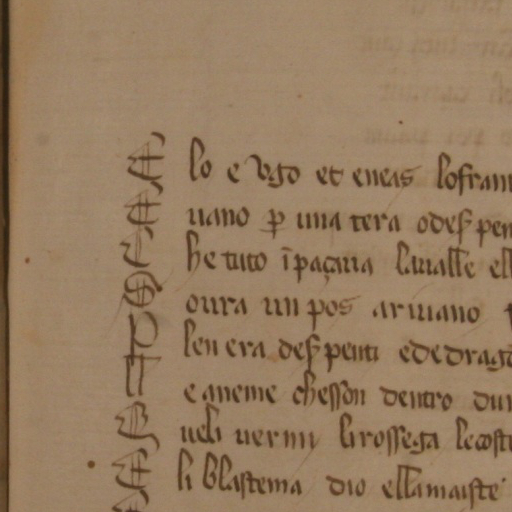 E lo e Vgo et eneas lofran
E uano ꝑ una tera odesꝑen
C he tuto īpaçaua laualle ell
S oura un pos ariuano
P len era desꝑenti ededrago
T e aneme chesson dentro dur
S ueli uermi lirossega lecoste
E li blastema dio ellamaiste